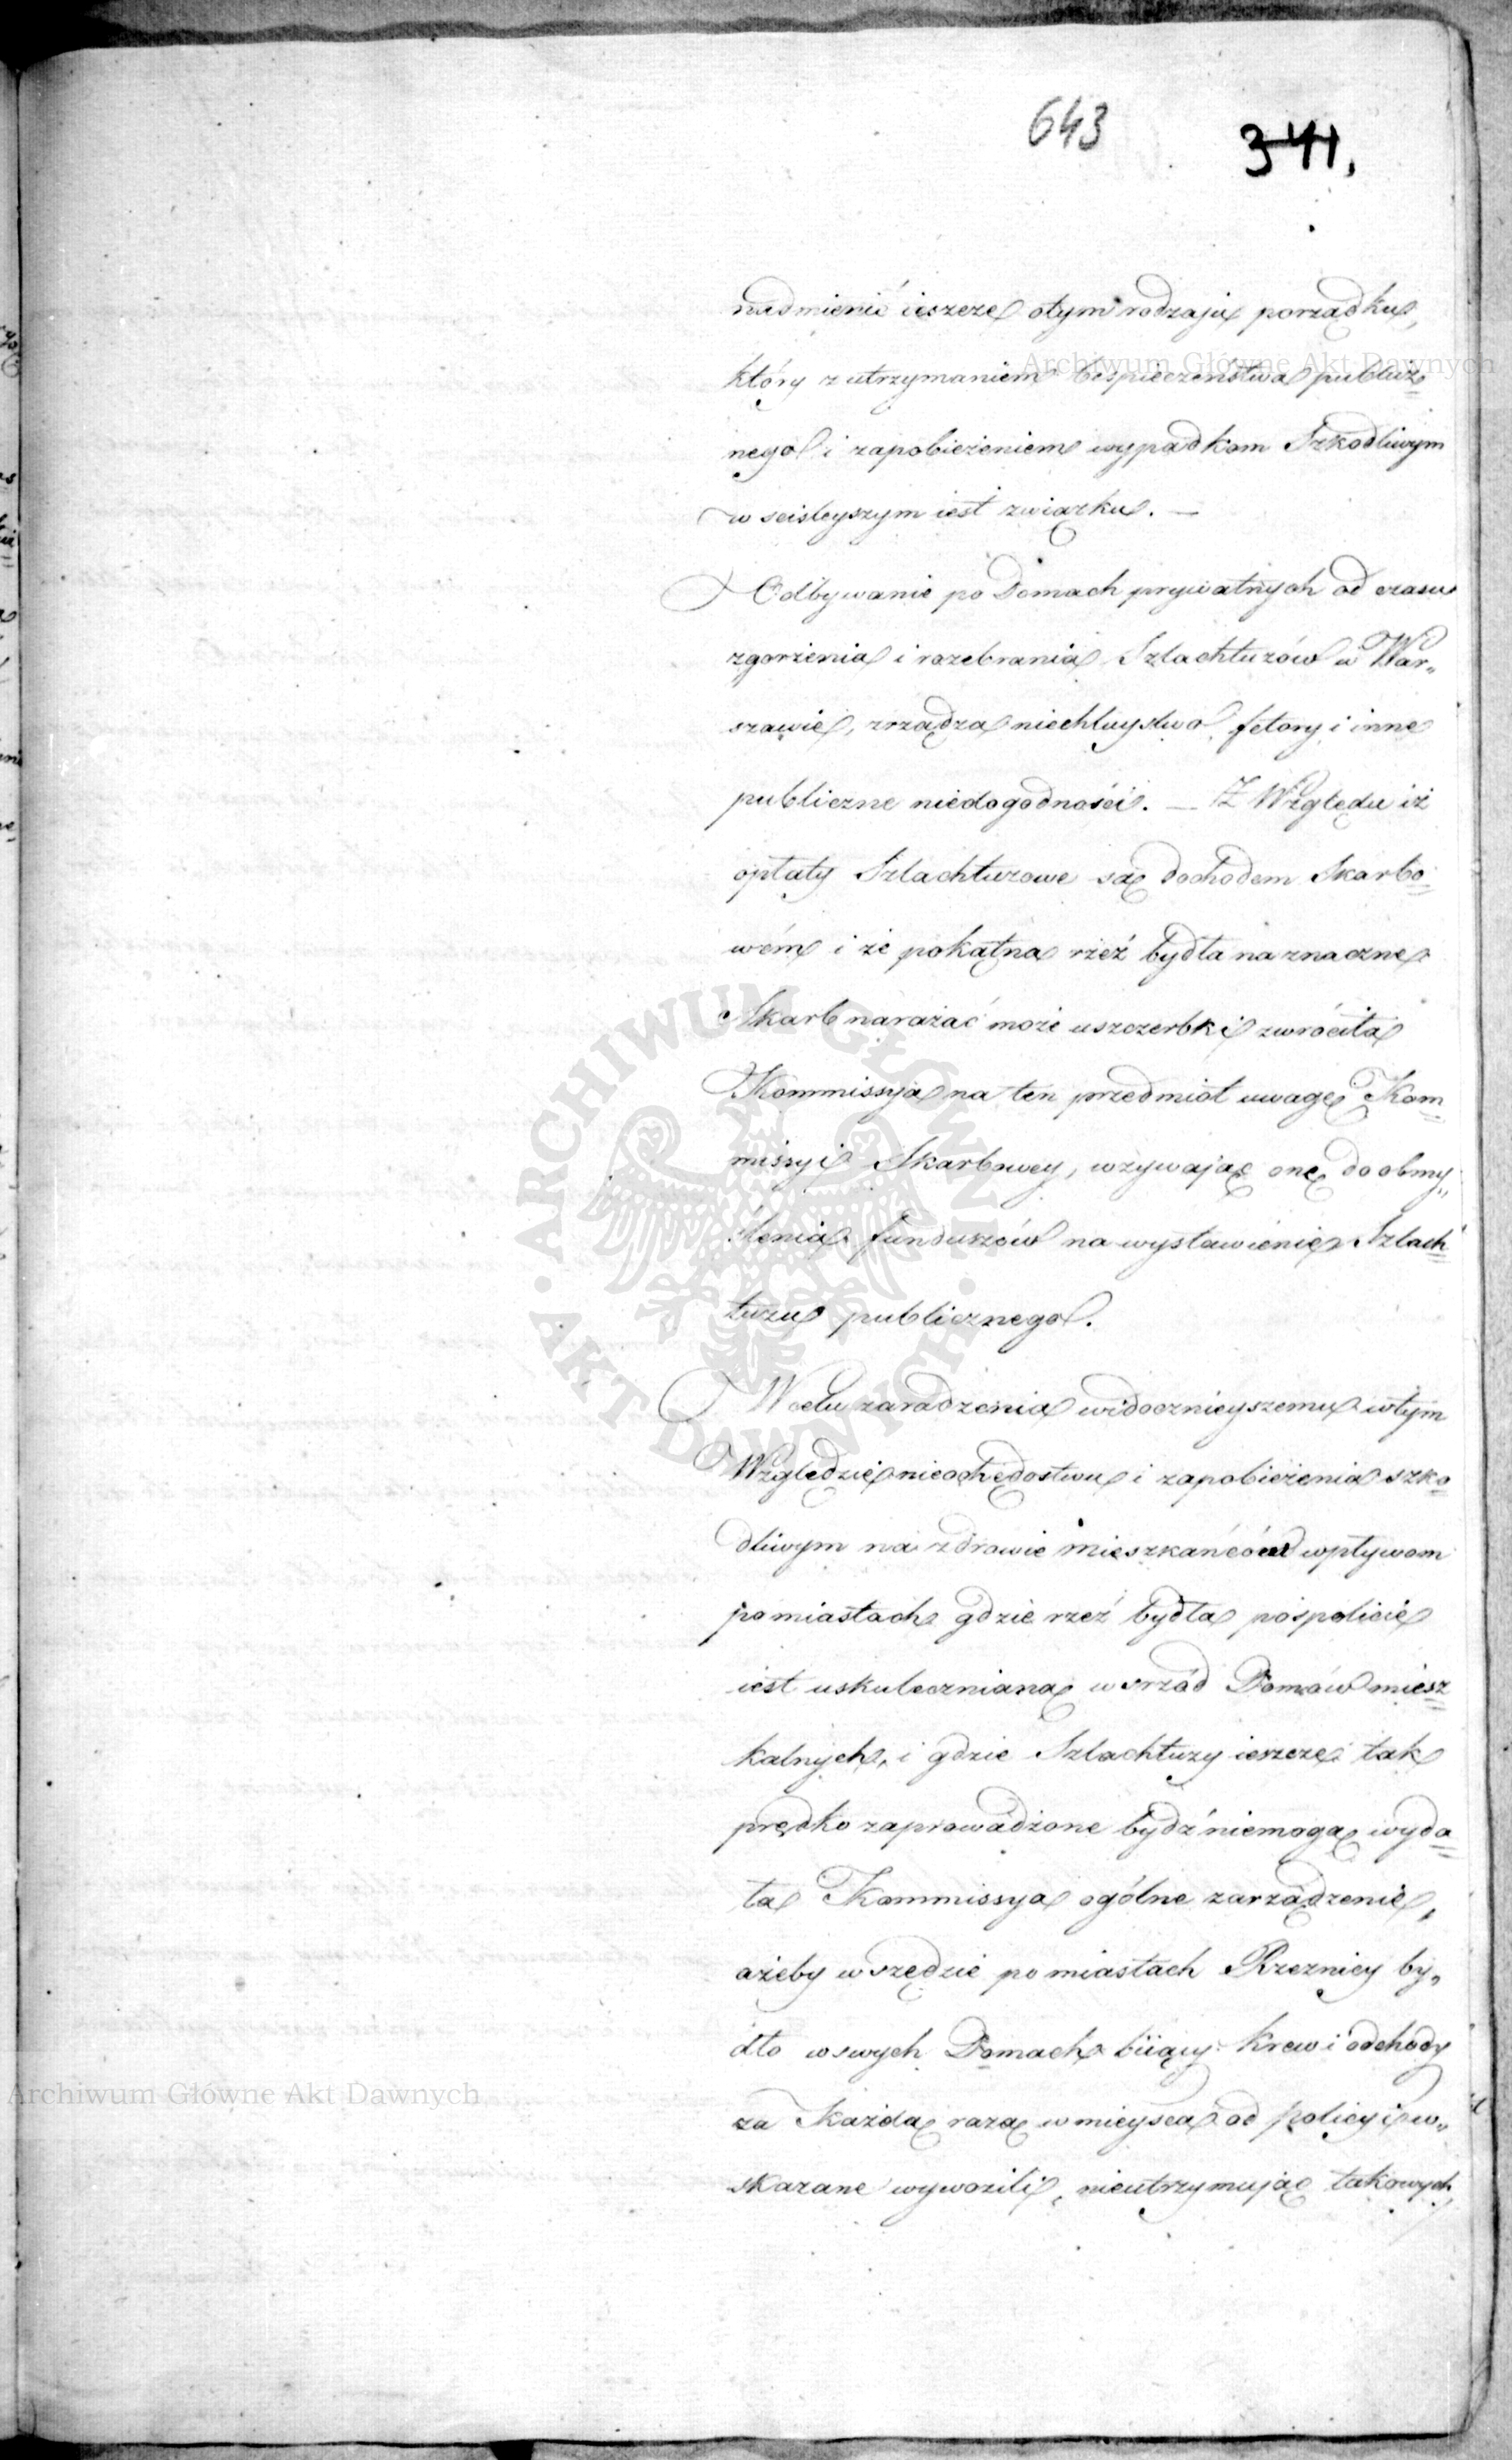 643
341.
nadmienić ieszcze otym rodzaju porządku,
który z utrzymaniem bespieczeństwa publicz=
nego i zapobieżeniem wypadkom Szkodliwym
w scisleyszym iest związku. —
Odbywanie po Domach prywatnych od czasu
zgorzenia i rozebrania Szlachtuzów w War„
szawie, zrządza niechluystwo, fetory i inne
publiczne niedogodności. — Z Względu iż
opłaty Szlachtuzowe są dochodem Skarbo=
wém i że pokątna rzeź bydła na znaczne
Skarb narażać może uszczerbki zwróciła
Kommissya na ten przedmiot uwagę Kom=
missyi Skarbowey, wzywając onę do obmy„
ślenia funduszów na wystawienie Szlach=
tuzu publicznego.
W celu zaradzenia widocznieyszemu wtym
Względzie nieochędostwu i zapobieżenia szko=
dliwym na zdrowie mieszkańców wpływom
po miastach gdzie rzeź bydła pospolicie
iest uskuteczniana wsrzód Domów miesz=
kalnych, i gdzie Szlachtuzy ieszcze tak
prędko zaprowadzone bydź niemogą wyda=
ła Kommissya ogólne zarządzenie,
ażeby wszędzie po miastach Rzeznicy by„
dło w swych Domach biiący krew i odchody
za Każdą razą w mieysca od policyi w„
skazane wywozili, nieutrzymując takowych
Archiwum Główne Akt Dawnych
Archiwum Główne Akt Dawnych
ARCHIWUM GŁÓWNE · AKT DAWNYCH ·